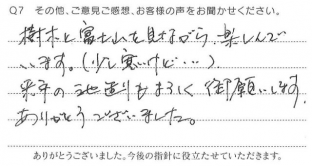 Q7 その他、ご意見ご感想、お客様の声をお聞かせください。
樹木と富士山を見ながら、楽しんで
います。(少し寒いけど…)
来年の池造りもよろしく御願いします。
ありがとうございました。
ありがとうございました。今後の指針に役立たせていただきます。